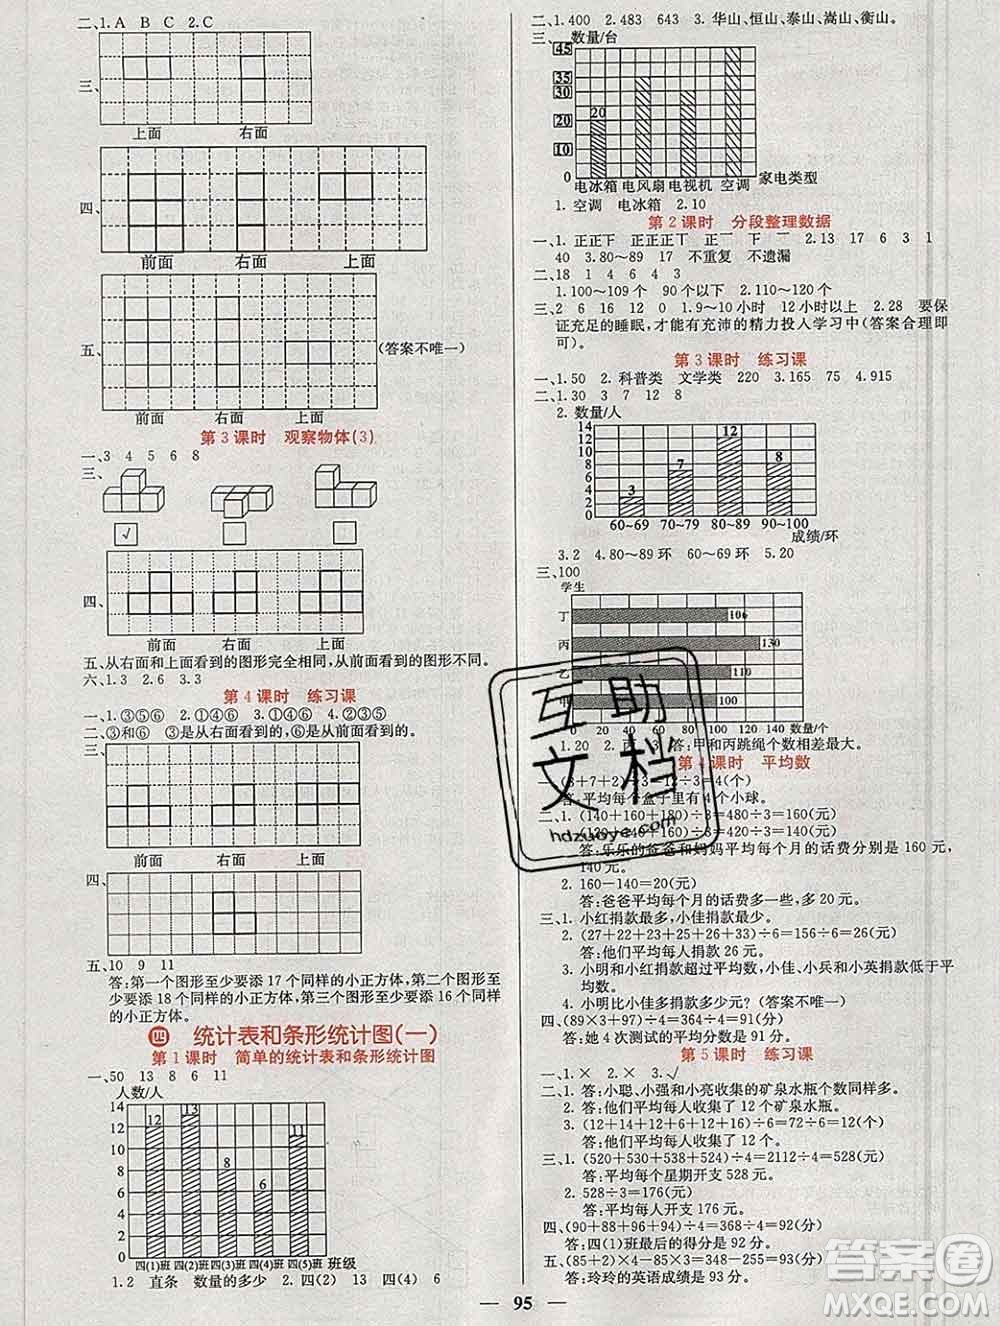 二、1.A B C 2.C
三、
上面 右面
四、
前面 右面 上面
五、
(答案不唯一)
前面 右面 上面
第3课时 观察物体(3)
一、3 4 5 6 8
三、
√
四、
前面 右面 上面
五、从右面和上面看到的图形完全相同,从前面看到的图形不同。
六、1.3 2.6 3.3
第4课时 练习课
一、1.③⑤⑥ 2.①④⑥ 3.①④⑥ 4.②④⑤
二、③和⑥ ③是从右面看到的,⑥是从前面看到的。
三、
前面 右面 上面
四、
五、10 9 11
答:第一个图形至少要添17个同样的小正方体,第二个图形至少要添18个同样的小正方体,第三个图形至少要添16个同样的小正方体。
四 统计表和条形统计图(一)
第1课时 简单的统计表和条形统计图
一、50 13 8 6 11
人数/人
14
12
10
8
6
4
2
0
12 13 8 6 11
四(1)班 四(2)班 四(3)班 四(4)班 四(5)班 班级
1.2 直条 数量的多少 2.四(2) 13 四(4) 6
二、1.400 2.483 643 3.华山、恒山、泰山、嵩山、衡山。
三、 数量/台
45
35
30
20
20
10
0
电冰箱 电风扇 电视机 空调 家电类型
1.空调 电冰箱 2.10
第2课时 分段整理数据
一、1.正正丅 正正正丅 正一 下 一 2.13 17 6 3 1
40 3.80~89 17 不重复 不遗漏
二、18 1 4 6 4 3
1.100~109个 90个以下 2.110~120个
三、2 6 16 12 0 1.9~10小时 12小时以上 2.28 要保
证充足的睡眠,才能有充沛的精力投入学习中(答案合理即
可)。
第3课时 练习课
一、1.50 2.科普类 文学类 220 3.165 75 4.915
二、1.30 3 7 12 8
2. 数量/人
14
12
10
8
6
4
2
0
3 7 12 8
60~69 70~79 80~89 90~100
成绩/环
3.2 4.80~89环 60~69环 5.20
三、100
学生
丁 106
丙 130
乙 110
甲
0 20 40 60 80 100 120 140 数量/个
1.20 2.丙 3.答:甲和丙跳绳个数相差最大。
第4课时 平均数
一、(3+7+2)÷3=12÷3=4(个)
答:平均每个盒子里有4个小球。
二、1.(140+160+180)÷3=480÷3=160(元)
(120+140+160)÷3=420÷3=140(元)
答:乐乐的爸爸和妈妈平均每个月的话费分别是160元,
140元。
2.160-140=20(元)
答:爸爸平均每个月的话费多一些,多20元。
三、1.小红捐款最多,小佳捐款最少。
2.(27+22+23+31+29+24)÷6=156÷6=26(元)
答:他们平均每人捐款26元。
3.小明和小红捐款超过平均数,小佳、小兵和小英捐款低于平
均数。
4.小明比小佳多捐款多少元?(答案不唯一)
四、(89×3+97)÷4=364÷4=91(分)
答:她4次测试的平均分数是91分。
第5课时 练习课
一、1.× 2.× 3.√
二、1.答:小聪、小强和小亮收集的矿泉水瓶个数同样多。
2.答:他们平均每人收集了12个矿泉水瓶。
3.(12+12+12+15+10+11)÷6=72÷6=12(个)
答:他们平均每人收集了12个。
三、1.(520+530+538+524)÷4=2112÷4=528(元)
答:平均每个星期开支528元。
2.528÷3=176(元)
答:平均每人开支176元。
四、(90+88+94+96)÷4=368÷4=92(分)
答:四(1)班最后的得分是92分。
五、(85+2)×4-255=348-255=93(分)
答:玲玲的英语成绩是93分。
互助文档
hdzuoye.com
答案圈
MXQE.COM
— 95 —